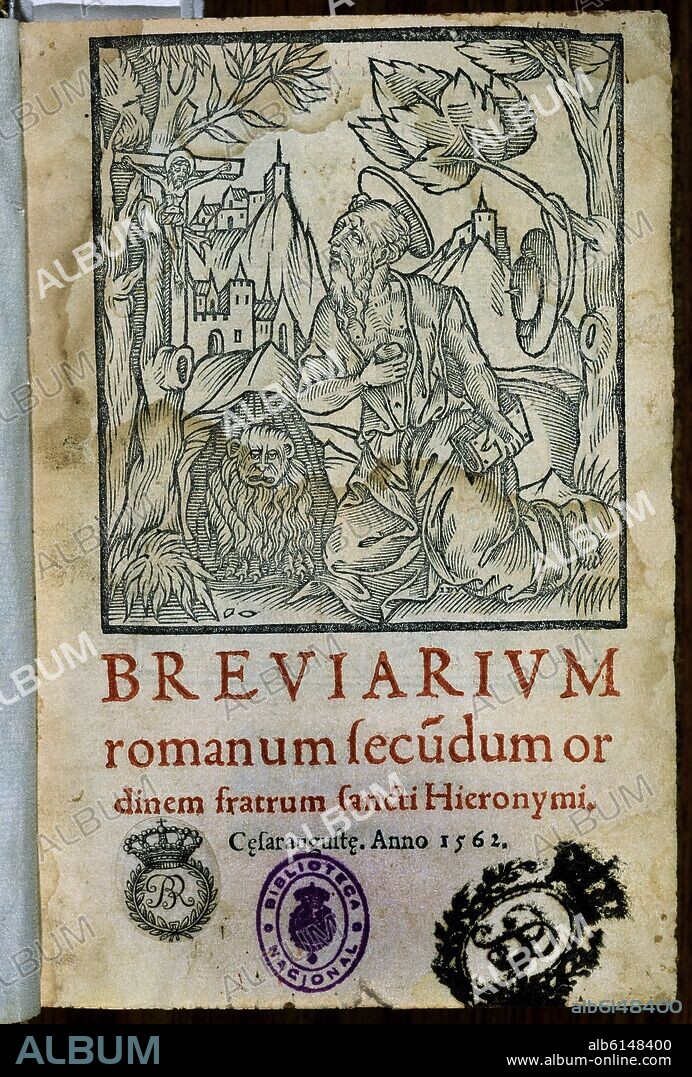 BREVIARIVM
romanum ſecūdum or
dinem fratrum ſancti Hieronymi.
Cęſarauguſtę. Anno 1562.
BR
BIBLIOTECA
NACIONAL
ALBUM
alb6148400
ALBUM
alb6148400
www.album-online.com